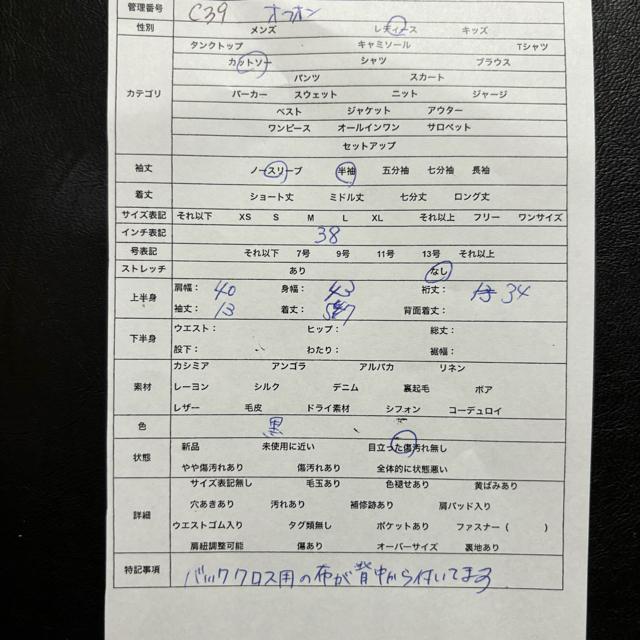 管理番号 C39 オフオン
性別 メンズ レディース キッズ
タンクトップ キャミソール Tシャツ
カットソー シャツ ブラウス
パンツ スカート
カテゴリ パーカー スウェット ニット ジャージ
ベスト ジャケット アウター
ワンピース オールインワン サロペット
セットアップ
袖丈 ノースリーブ 半袖 五分袖 七分袖 長袖
着丈 ショート丈 ミドル丈 七分丈 ロング丈
サイズ表記 それ以下 XS S M L XL それ以上 フリー ワンサイズ
インチ表記 38
号表記 それ以下 7号 9号 11号 13号 それ以上
ストレッチ あり なし
上半身 肩幅: 40 身幅: 43 裄丈: 13 34
袖丈: 13 着丈: 背面着丈:
下半身 ウエスト: ヒップ: 総丈:
股下: わたり: 裾幅:
カシミア アンゴラ アルパカ リネン
素材 レーヨン シルク デニム 裏起毛 ボア
レザー 毛皮 ドライ素材 シフォン コーデュロイ
色 黒
状態 新品 未使用に近い 目立った傷汚れ無し
やや傷汚れあり 傷汚れあり 全体的に状態悪い
サイズ表記無し 毛玉あり 色褪せあり 黄ばみあり
詳細 穴あきあり 汚れあり 補修跡あり 肩パッド入り
ウエストゴム入り タグ類無し ポケットあり ファスナー ( )
肩紐調整可能 傷あり オーバーサイズ 裏地あり
特記事項 バッククロス用の布が背中から付いてます